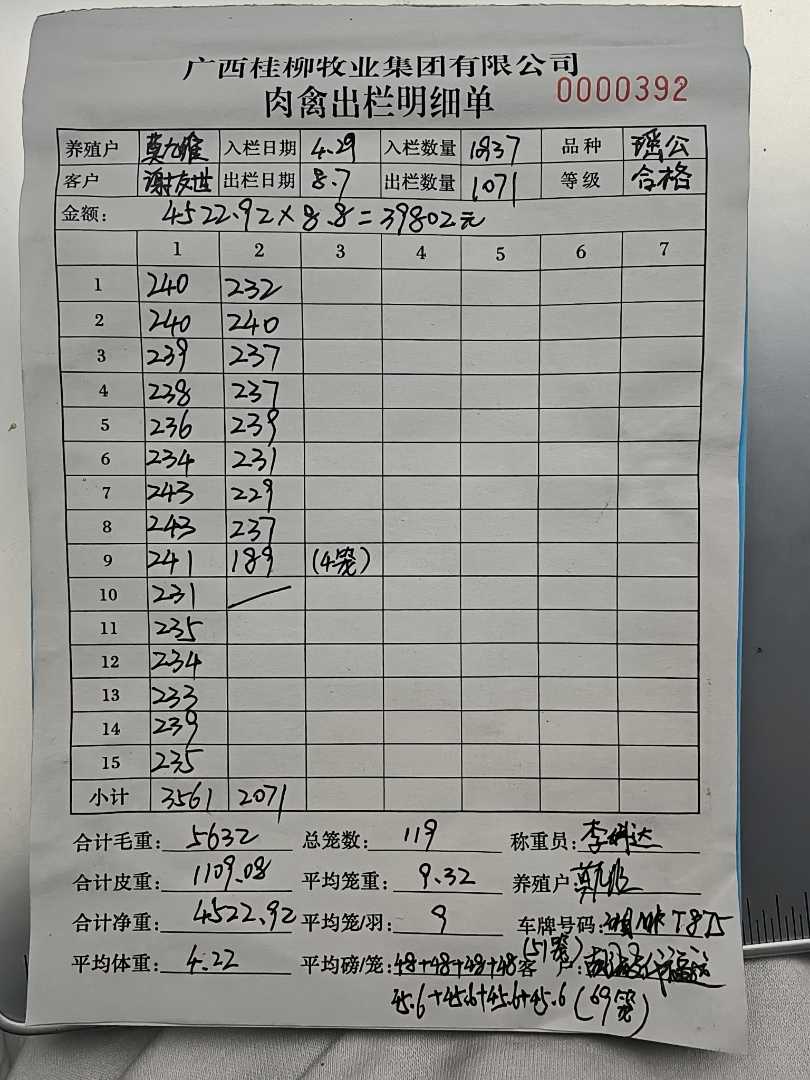 广西桂柳牧业集团有限公司
肉禽出栏明细单 0000392
养殖户 入栏日期 4.29 入栏数量 1837 品种 瑶公
客户 谢友世 出栏日期 8.7 出栏数量 1071 等级 合格
金额: 4522.92×8.8=39802元
1 2 3 4 5 6 7
1 240 232
2 240 240
3 239 237
4 238 237
5 236 239
6 234 231
7 243 229
8 243 237
9 241 189 (4笼)
10 231
11 235
12 234
13 233
14 239
15 235
小计 3561 2071
合计毛重: 5632 总笼数: 119 称重员: 李
合计皮重: 1109.08 平均笼重: 9.32 养殖户:
合计净重: 4522.92 平均笼/羽: 9 车牌号码: T875
平均体重: 4.22 平均磅/笼: 48+48+48+48 (51笼) 客 户:
45.6+45.6+45.6+45.6 (69笼)